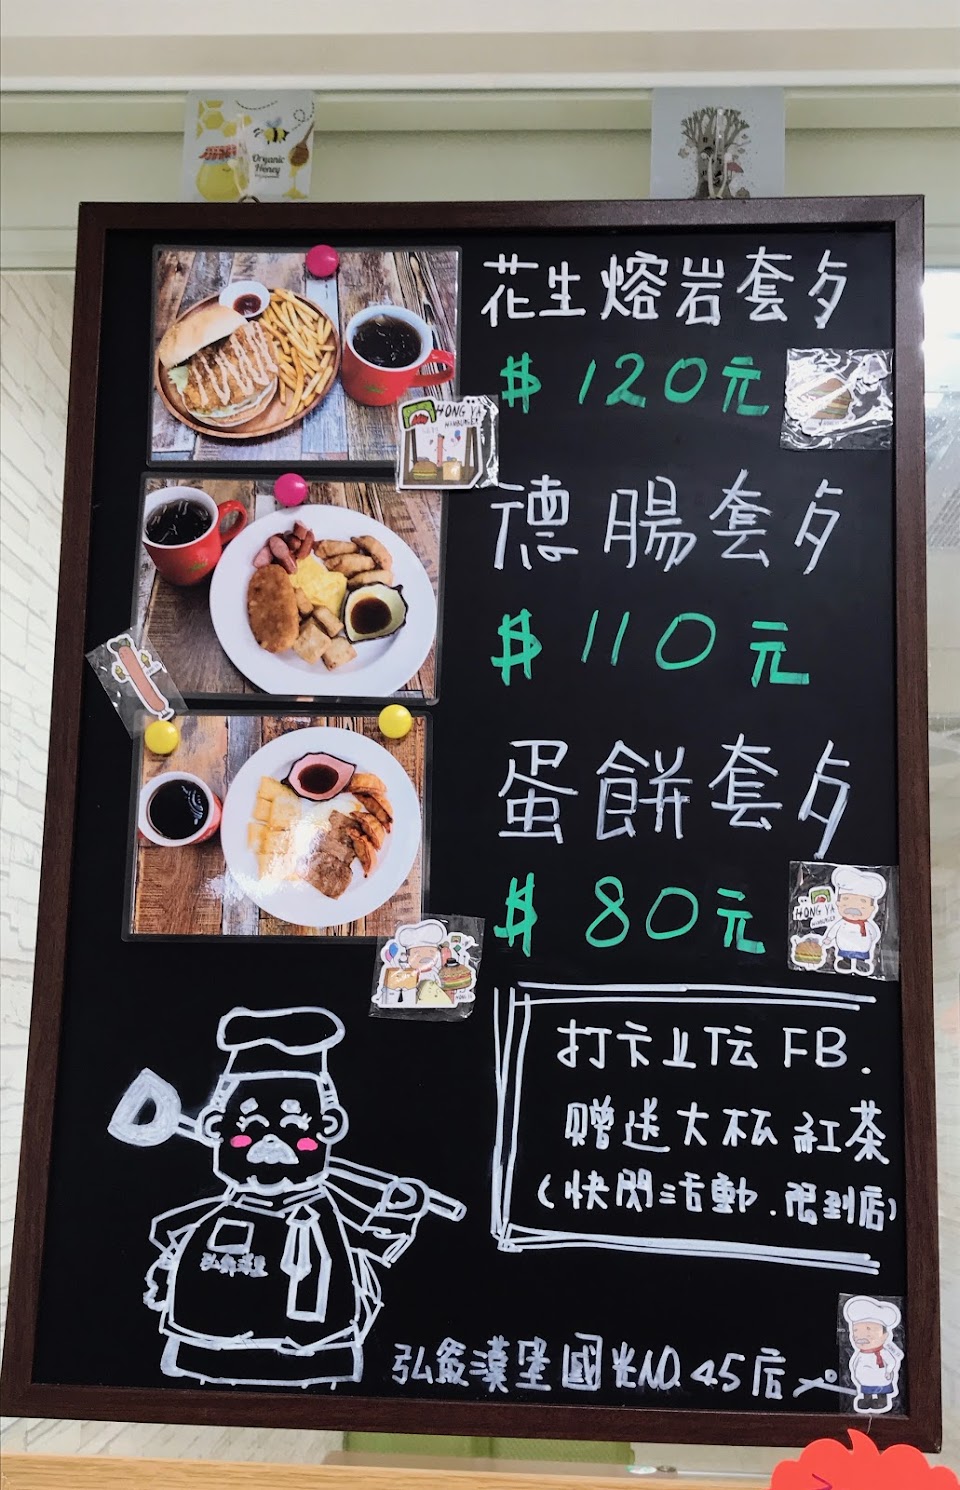 Organic
Honey
花生熔岩套歺
$ 120元
HONG YA
HAMBURGER
德腸套歺
$ 110元
蛋餅套歺
$ 80元
HONG YA
HAMBURGER
打卡上伝 FB.
贈送大杯紅茶
(快閃活動.限到店)
弘爺漢堡
弘爺漢堡國光NO.45店